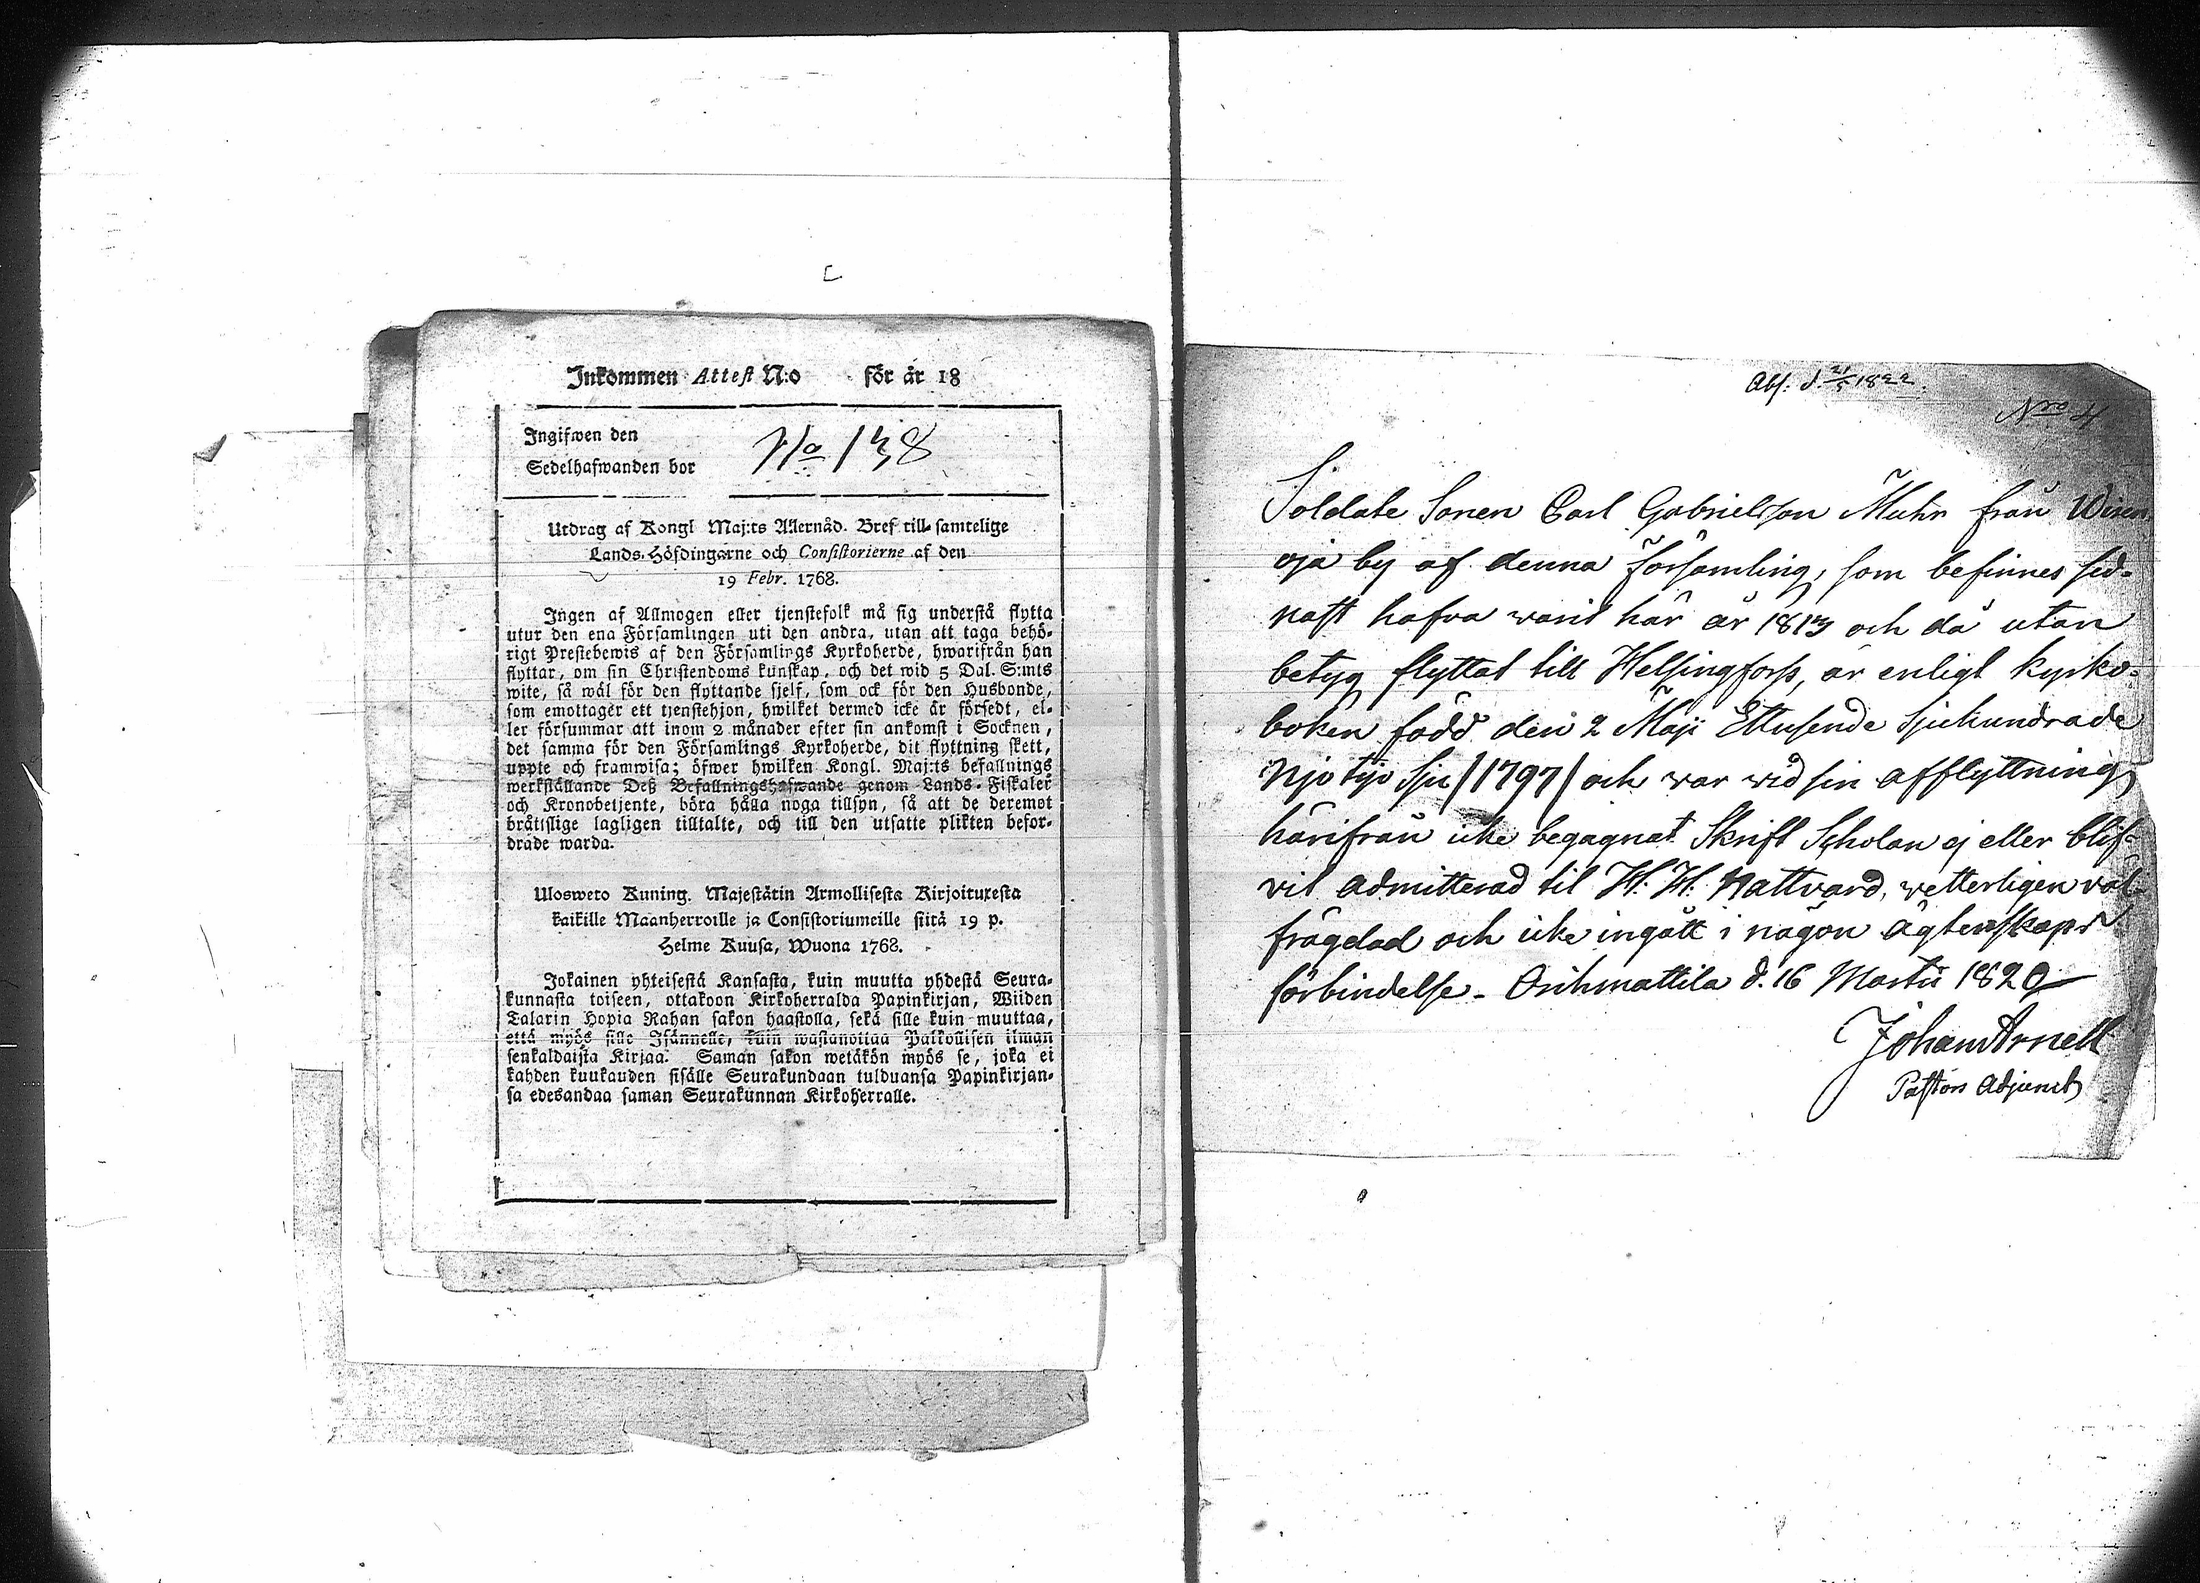 Inkommen Attest N:o för år 18
Ingifwen den
Sedelhafwanden bor
No 138
Utdrag af Kongl Maj:ts Allernåd. Bref till samtelige
Lands-Höfdingarne och Consistorierne af den
19 Febr. 1768.
Ingen af Allmogen eller tjenstefolk må sig understå flytta
utur den ena Församlingen uti den andra, utan att taga behö-
rigt Prestebewis af den Församlings Kyrkoherde, hwarifrån han
flyttar, om sin Christendoms kunskap, och det wid 5 Dal. S:mts
wite, så wäl för den flyttande sjelf, som ock för den Husbonde,
som emottager ett tjenstehjon, hwilket dermed icke är försedt, el-
ler försummar att inom 2 månader efter sin ankomst i Socknen,
det samma för den Församlings Kyrkoherde, dit flyttning skett,
uppte och framwisa; öfwer hwilken Kongl. Maj:ts befallnings
werkställande Deß Befallningshafwande genom Lands-Fiskaler
och Kronobetjente, böra hålla noga tillsyn, så att de deremot
bråttslige lagligen tilltalte, och till den utsatte plikten befor-
drade warda.
Ulosweto Kuning. Majestätin Armollisesta Kirjoituxesta
kaikille Maanherroille ja Consistoriumeille siitä 19 p.
Helme Kuusa, Wuona 1768.
Jokainen yhteisestä Kansasta, kuin muutta yhdestä Seura-
kunnasta toiseen, ottakoon Kirkoherralda Papinkirjan, Wiiden
Talarin Hopia Rahan sakon haastolla, sekä sille kuin muuttaa,
että myös sille Isännelle, kuin wastanottaa Palkollisen ilman
senkaldaista Kirjaa. Saman sakon wetäkön myös se, joka ei
kahden kuukauden sisälle Seurakundaan tulduansa Papinkirjan-
sa edesandaa saman Seurakunnan Kirkoherralle.
Abs. d. 21/5 1822.
Nro 4
Soldate Sonen Carl Gabrielsson Muhr från Wiren
oja by af denna Församling, som befinnes sed-
nast hafva varit här år 1813 och då utan
betyg flyttat till Helsingfors, är enligt kyrko-
boken född den 2 Maji Ettusende Sjuhundrade
Njo tijo sju /1797/ och war wid sin afflyttning
härifrån icke begagnat Skrift Scholan ej eller blif-
vit admitterad til H: H: Nattvard, vetterligen väl-
frägdad och icke ingått i någon ägtenskaps
förbindelse. Orihmattila d. 16 Martii 1820
Johan Arnell
Pastors Adjunct